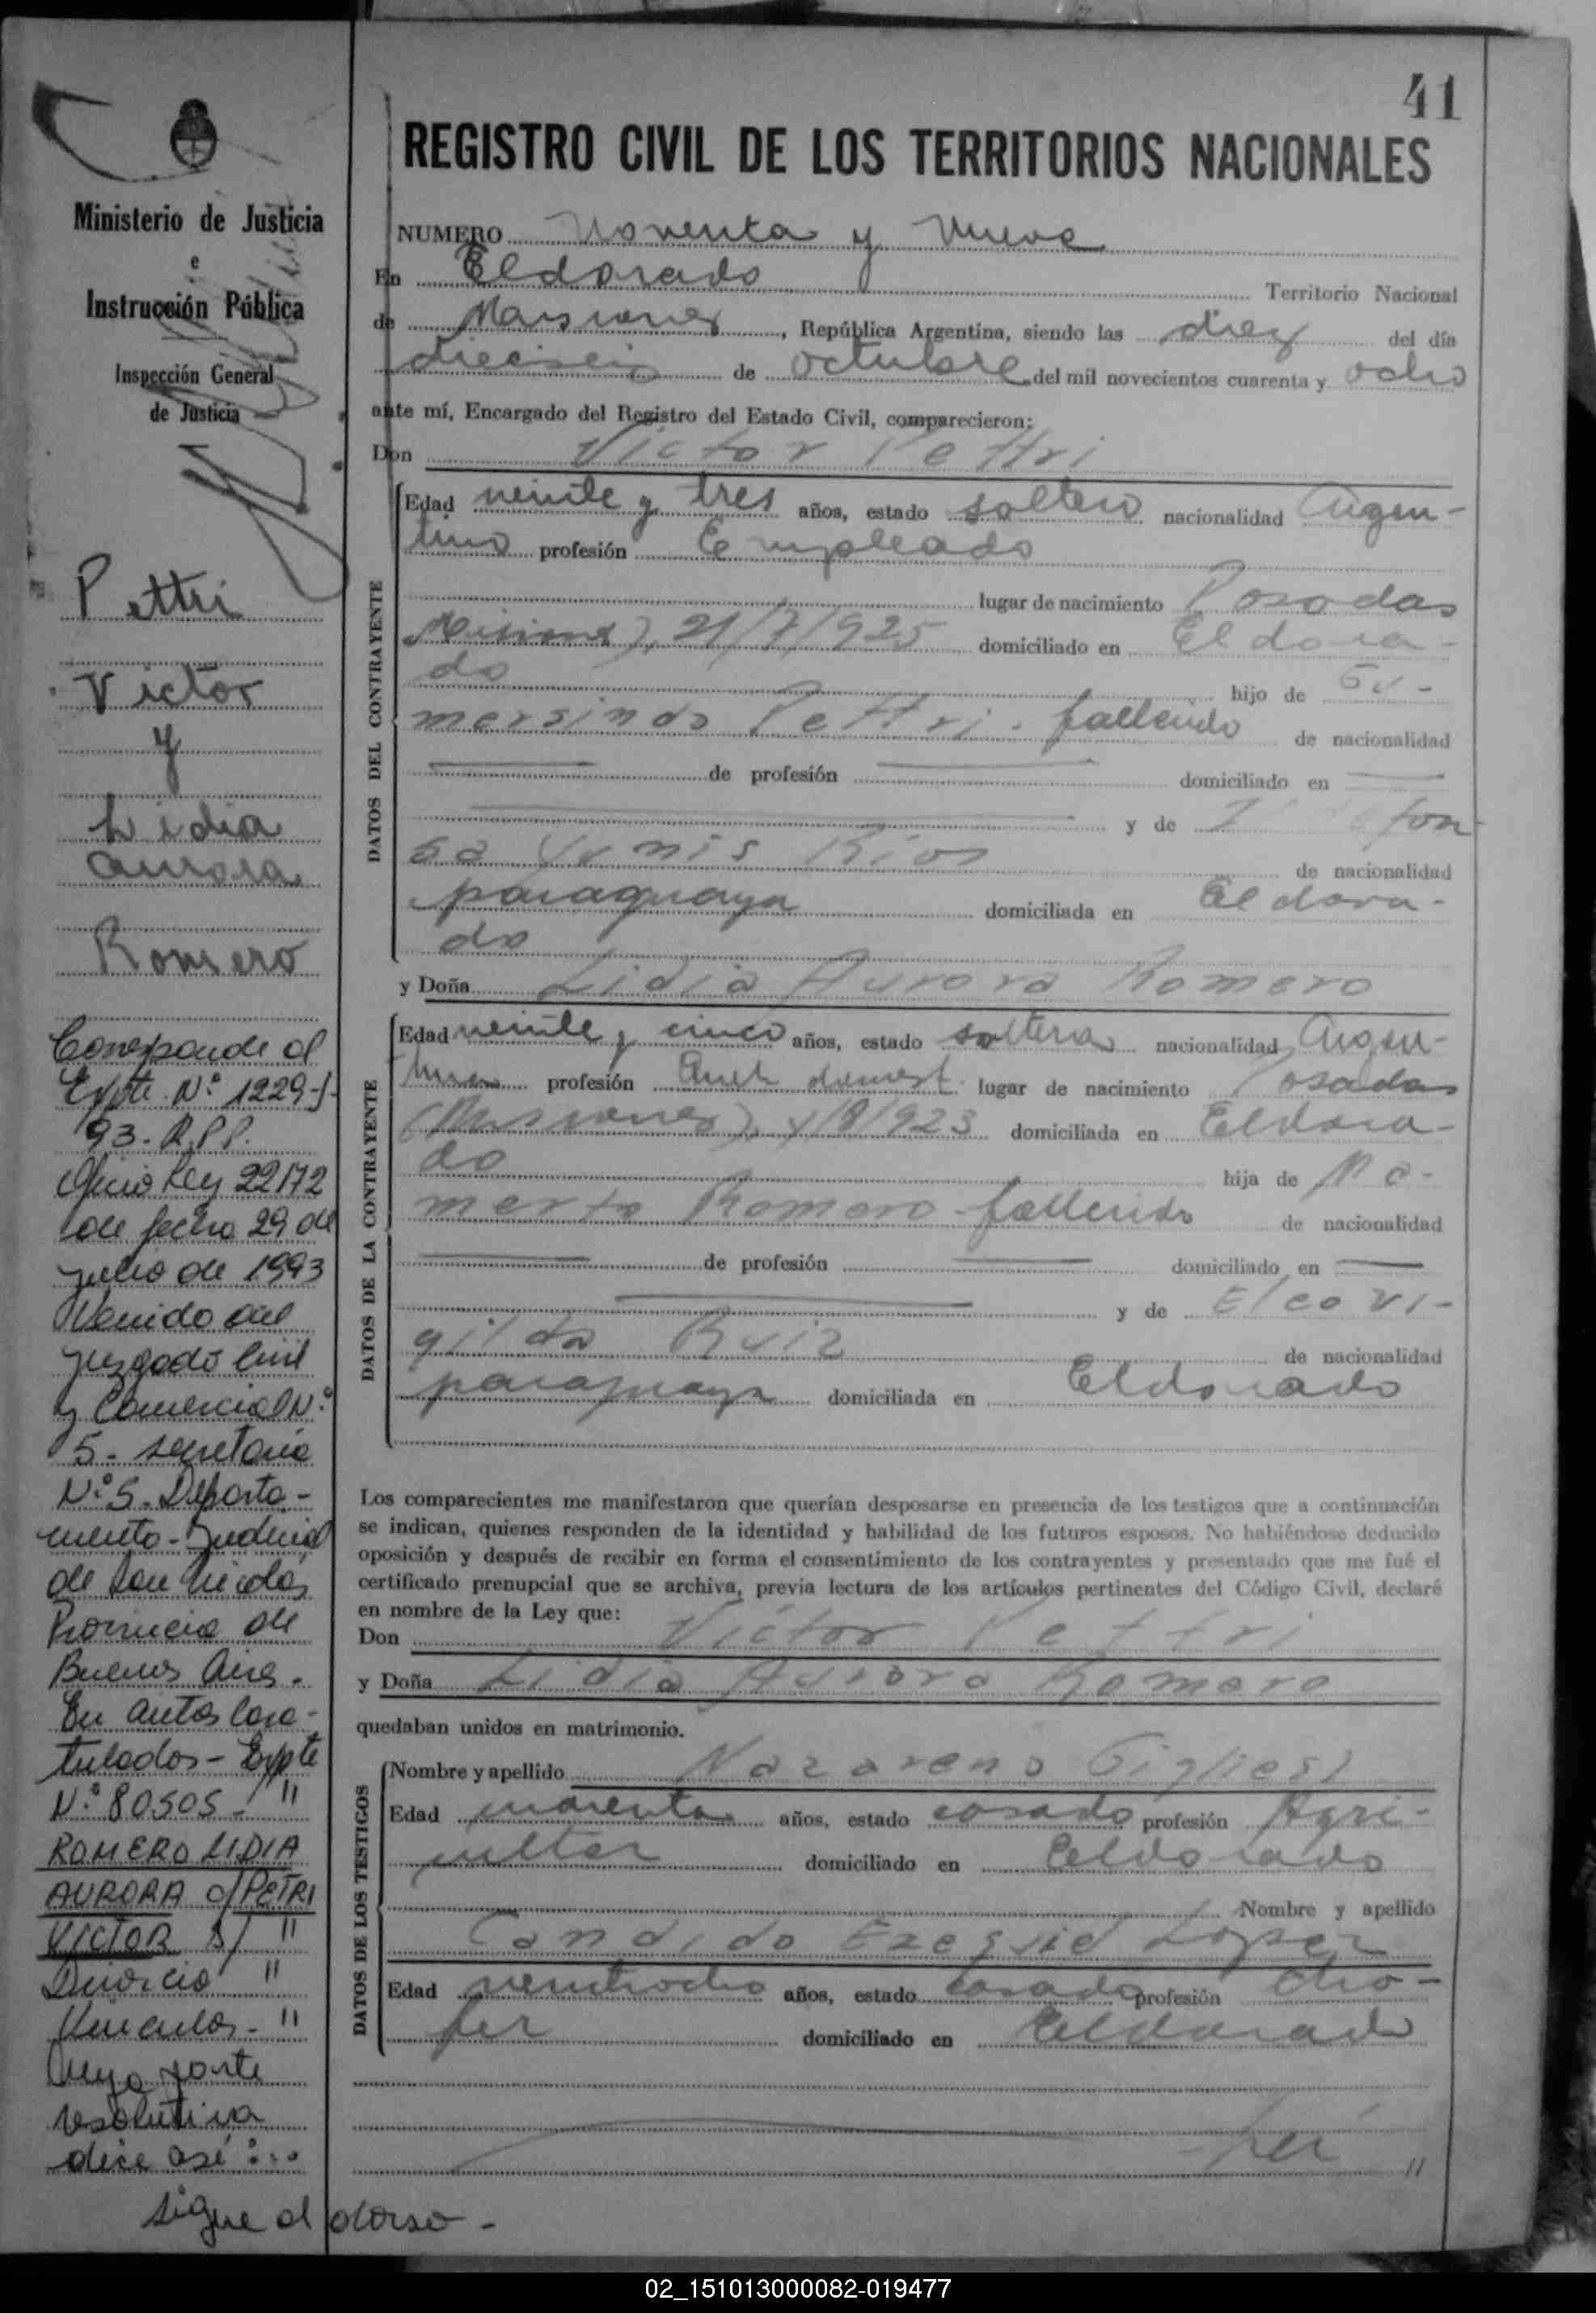 41
REGISTRO CIVIL DE LOS TERRITORIOS NACIONALES
Ministerio de Justicia
e
Instrucción Pública
Inspección General
de Justicia
NUMERO Noventa y nueve
En Eldorado Territorio Nacional
de Misiones, República Argentina, siendo las diez del día
dieciseis de octubre del mil novecientos cuarenta y ocho
ante mí, Encargado del Registro del Estado Civil, comparecieron:
Don Victor Pettri
DATOS DEL CONTRAYENTE
Edad veinte y tres años, estado soltero nacionalidad Argen-
tino profesión Empleado
lugar de nacimiento Posadas
Misiones), 21/7/925 domiciliado en Eldora-
do hijo de Gu-
mersindo Pettri - fallecido de nacionalidad
de profesión domiciliado en
y de fon
sa Yunis Rios de nacionalidad
paraguaya domiciliada en Eldora-
do
y Doña Lidia Aurora Romero
DATOS DE LA CONTRAYENTE
Edad veinte y cinco años, estado soltera nacionalidad Argen-
tina profesión domest. lugar de nacimiento Posadas
(Misiones), /8/923 domiciliada en Eldora-
do hija de Ma-
merto Romero - fallecido de nacionalidad
de profesión domiciliado en
y de Eleovi-
gilda Ruiz de nacionalidad
paraguaya domiciliada en Eldorado
Los comparecientes me manifestaron que querían desposarse en presencia de los testigos que a continuación
se indican, quienes responden de la identidad y habilidad de los futuros esposos. No habiéndose deducido
oposición y después de recibir en forma el consentimiento de los contrayentes y presentado que me fué el
certificado prenupcial que se archiva, previa lectura de los artículos pertinentes del Código Civil, declaré
en nombre de la Ley que:
Don Victor Pettri
y Doña Lidia Aurora Romero
quedaban unidos en matrimonio.
DATOS DE LOS TESTIGOS
Nombre y apellido Nazareno
Edad cuarenta años, estado casado profesión Agri-
cultor domiciliado en Eldorado
Nombre y apellido
Candido Ezequiel Lopez
Edad veintiocho años, estado casado profesión cho-
fer domiciliado en Eldorado
Pettri
Victor
y
Lidia
Aurora
Romero
Corresponde al
Expte. N° 1229-J-
93- R.P.P.
Oficio Ley 22172
de fecha 29 de
julio de 1993
Venido del
juzgado Civil
y Comercial N.°
5- secretaria
N.° 5- Departa-
mento- Judicial
de San Nicolás
Provincia de
Buenos Aires.
En autos cara-
tulados- Expte
N.° 80505- "
ROMERO LIDIA
AURORA c/ PETRI
VICTOR S/ "
Divorcio "
Vincular- "
Cuya parte
resolutiva
dice así:...
sigue al dorso-
02_151013000082-019477